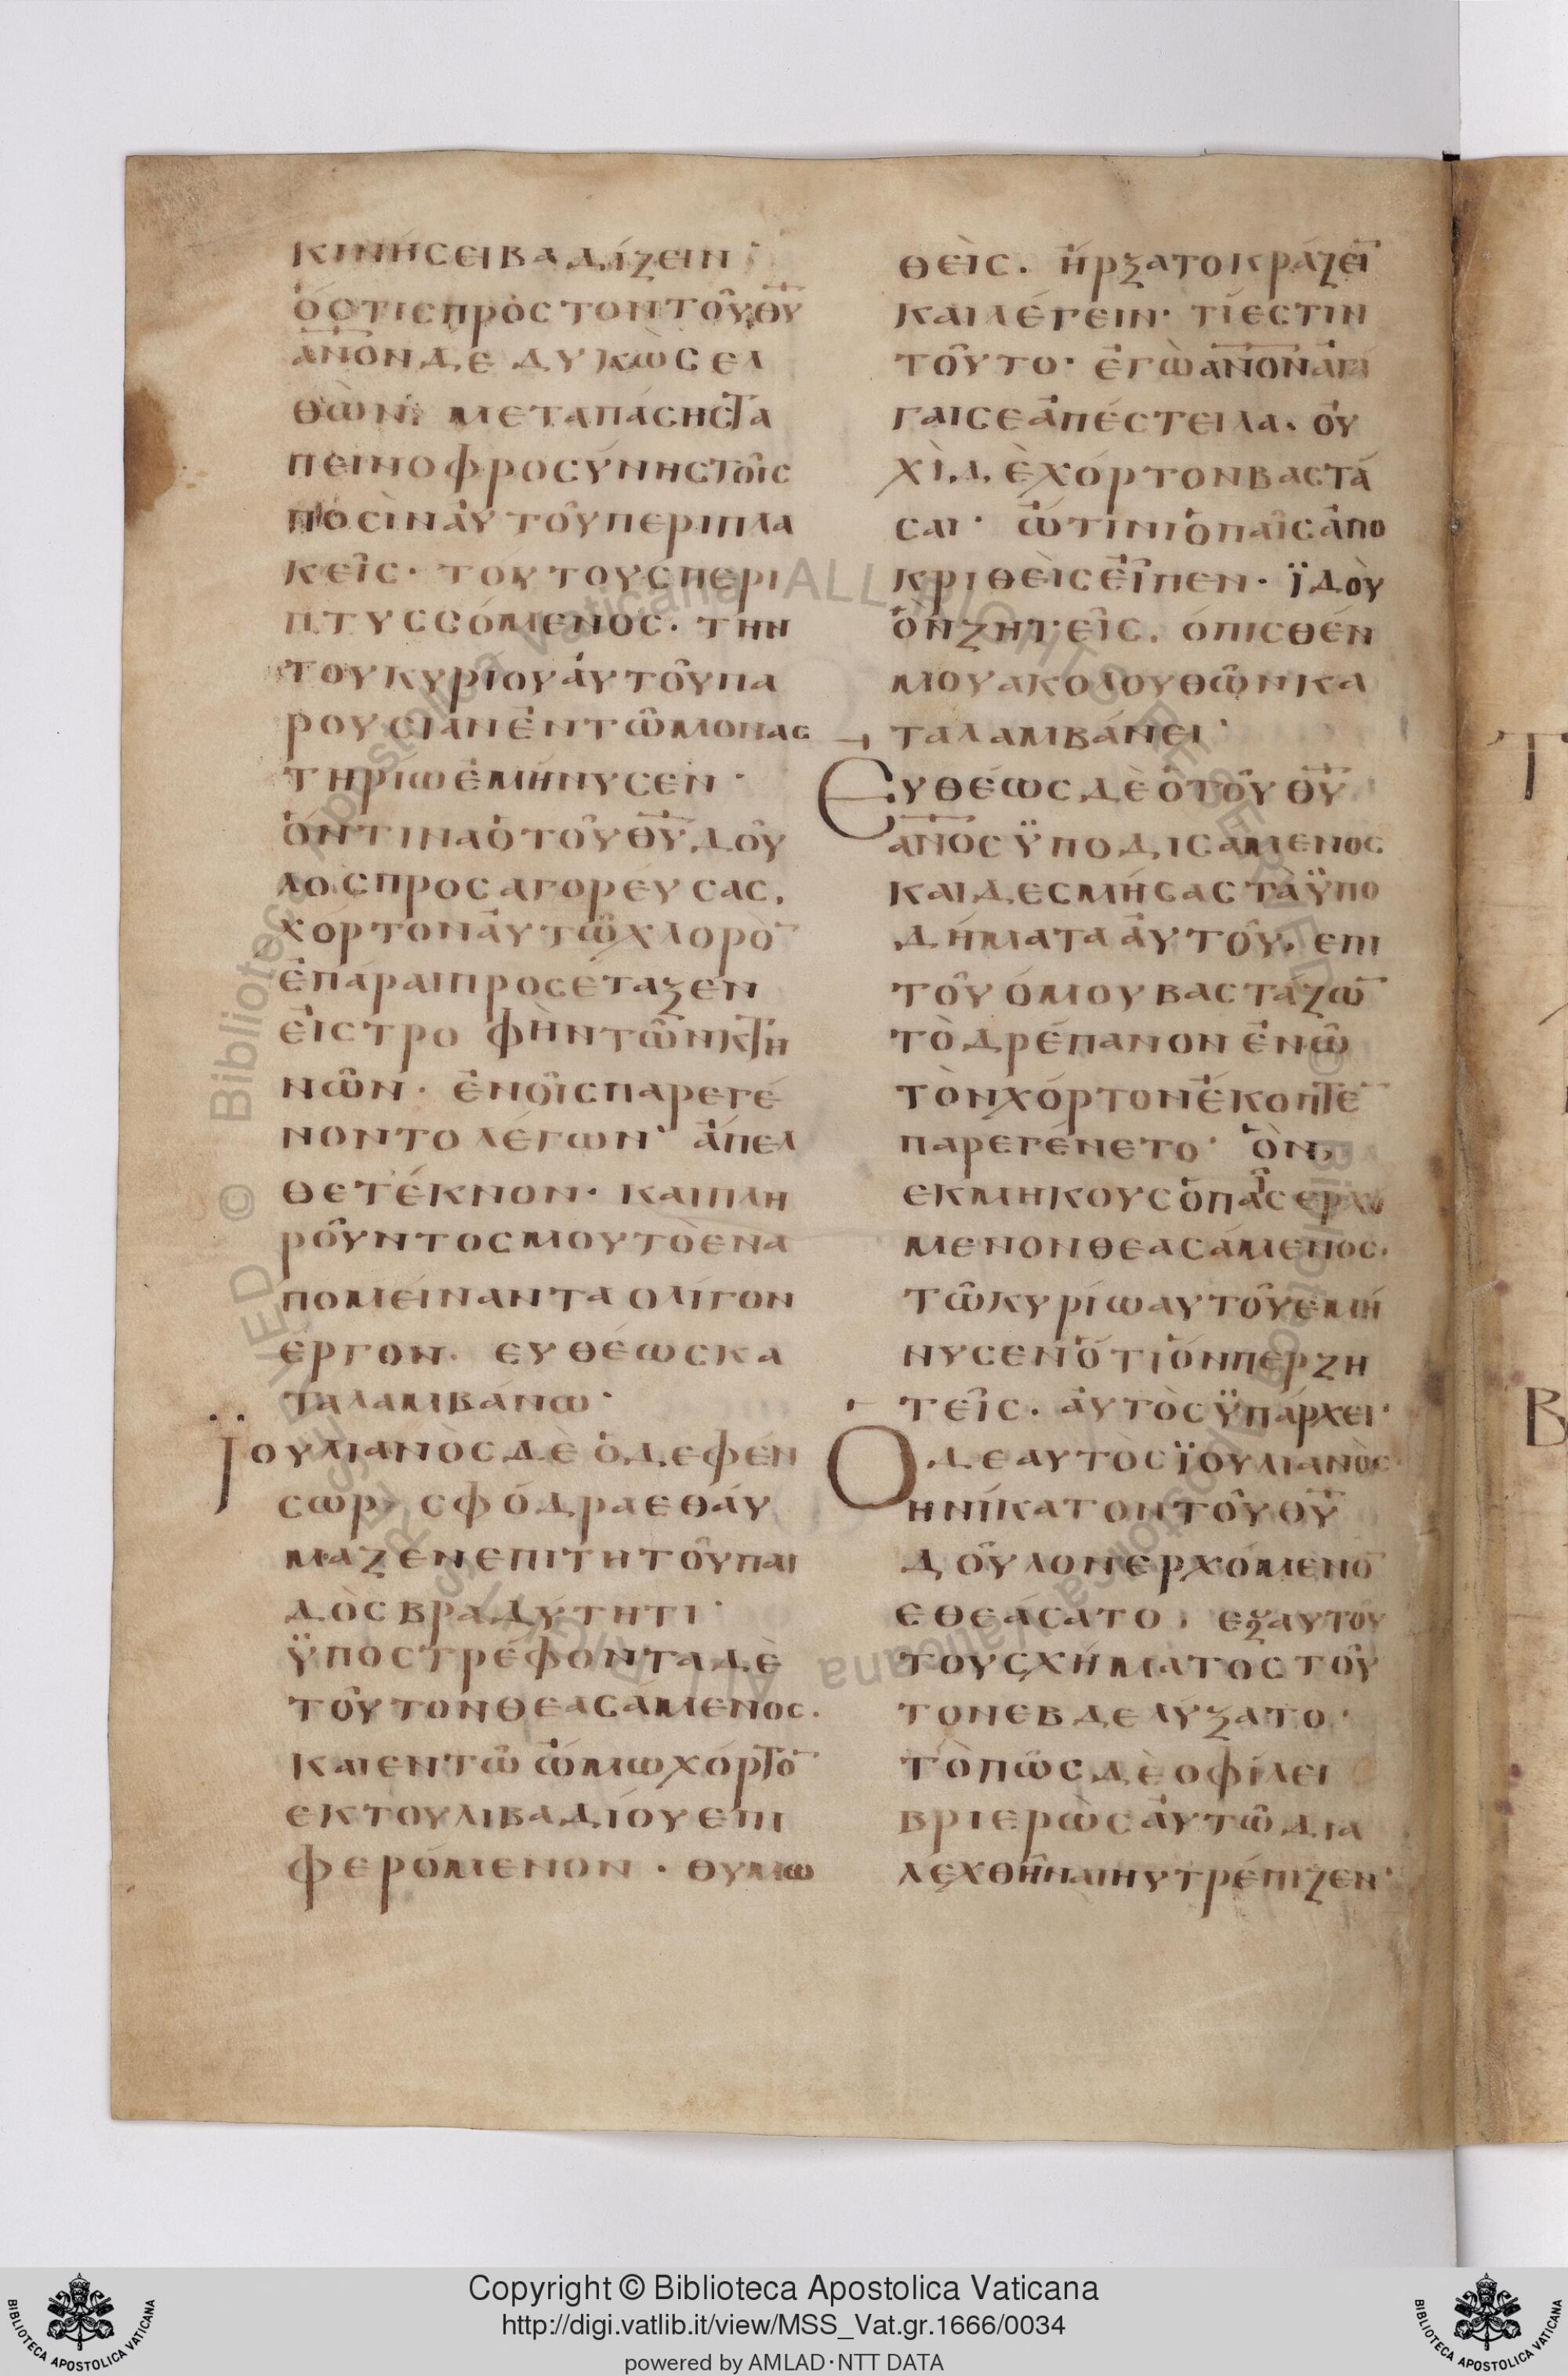 κινήσει βαδίζειν·
ὅστις πρὸς τὸν τοῦ θυ
ανον δε δυκῶς ελ
θὼν· μετα πάσης τα
πεινοφροσύνης τοῖς
ποσὶν ἀυτοῦ περιπλα
κεῖς· τόυτους περι
πτυσσόμενος· την
του κυρίου ἀυτοῦ πα
ρουσίαν ἐν τῶ μονασ
τηρίω ἐμήνυσεν·
ὅντινα ὁ τοῦ θυ δοῦ
λος προσαγορέυσας,
χόρτον ἀυτῶ χλορὸ̄
ἐπάραι προσέταξεν
ἐις τροφὴν τῶν κτη
νῶν· ἐν οἷς παρεγέ
νοντο λέγων· ἄπελ
θε τέκνον· και πλη
ροῦντος μου τὸ ενα
πομείναντα ολίγον
έργον· ευθέως κα
ταλαμβάνω·
Ϊουλιανὸς δὲ ὁ δεφέν
σωρ, σφόδρα εθάυ
μαζεν επι τη τοῦ παι
δὸς βραδύτητι·
ϋποστρέφοντα δὲ
τοῦτον θεασάμενος·
και εν τῶ ὤμω χόρτο̄
εκ του λιβαδίου επι
φερόμενον· θυμω
θεὶς· ἤρξατο κράζεῑ
και λέγειν· τί εστιν
τοῦτο· ἐγὼ ανον ἀγα
γαι σε ἀπέστειλα· οὐ
χὶ δὲ χόρτον βαστά
σαι· ὧτινι ὁ παῖς ἀπο
κριθεὶς εἶπεν· ϊδοὺ
ὃν ζητεῖς, όπισθέν
μου ακολουθῶν κα
ταλαμβάνει·
Ευθέως δὲ ὁ τοῦ θυ
ανος ϋποδισάμενος
και δεσμήσας τὰ ϋπο
δήματα ἀυτοῦ, επι
τοῦ όμου βαστάζω̄
τὸ δρέπανον ἐν ῶ
τὸν χόρτον ἔκοπτε̄
παρεγένετο· ὃν,
εκ μηκους ὁ παῖς ερχο
μενον θεασάμενος·
τῶ κυρίω αυτοῦ εμή
νυσεν ὅτι ὅνπερ ζη
τεῖς· ἀυτὸς ϋπάρχει·
Ο δε αυτὸς ϊουλιανὸς
ηνίκα τον τοῦ θυ
δοῦλον ερχόμενο̄
εθεάσατο, εξ αυτοῦ
του σχήματος τοῦ
τον εβδελύξατο·
τὸ πῶς δὲ οφίλει
βριερὼς ἀυτῶ δια
λεχθῆναι ηυτρέπιζεν·
Copyright © Biblioteca Apostolica Vaticana
http://digi.vatlib.it/view/MSS_Vat.gr.1666/0034
powered by AMLAD·NTT DATA